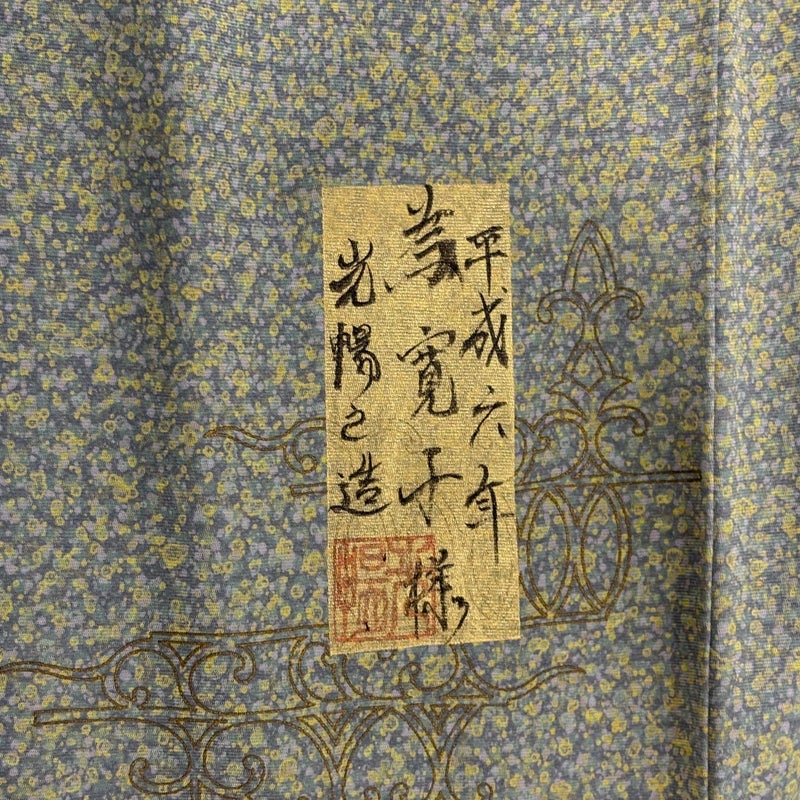 平成六年
為寛子様
光暢之造